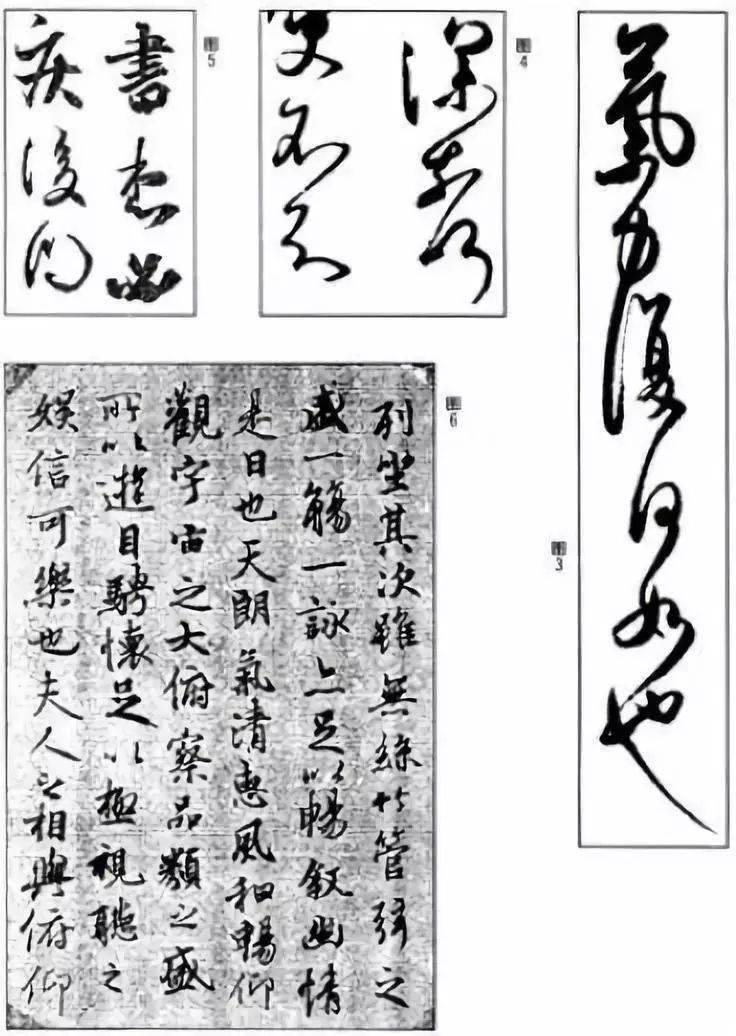 氣力復何如也
3
4
書想必
疾後
5
列坐其次雖無絲竹管弦之
盛一觴一詠亦足以暢敘幽情
是日也天朗氣清惠風和暢仰
觀宇宙之大俯察品類之盛
所以遊目騁懷足以極視聽之
娛信可樂也夫人之相與俯仰
6